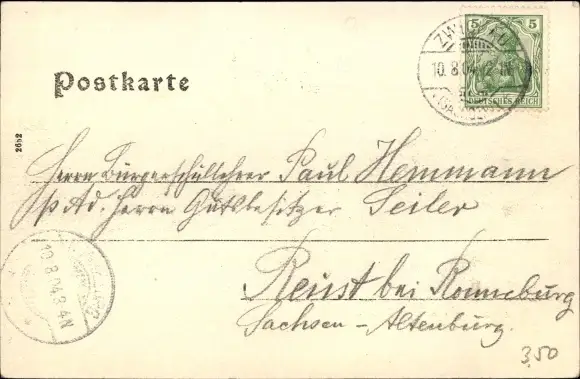 Postkarte
5 5
DEUTSCHES REICH
10.8.04
2662
Herrn Bürgerschullehrer Paul Hemmann
p. Ad. Herrn Gutsbesitzer Seiler
Reust bei Ronneburg
Sachsen-Altenburg.
10.8.04
3,50